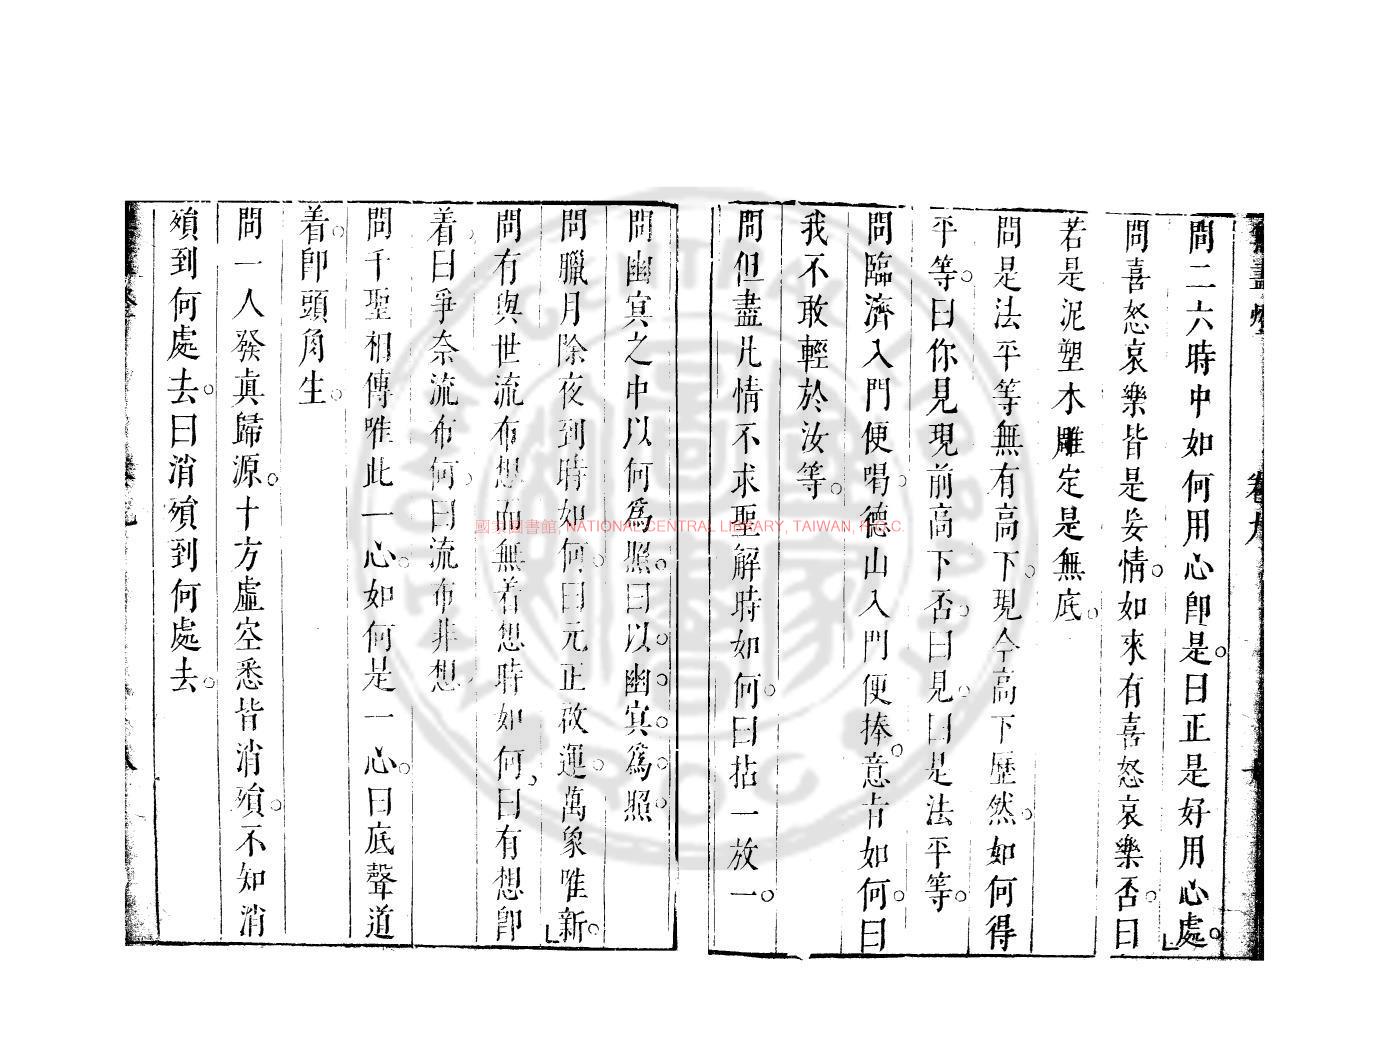 問二六時中如何用心卽是。曰正是好用心處。
問喜怒哀樂皆是妄情。如來有喜怒哀樂否。曰
若是泥塑木雕定是無底。
問是法平等無有高下。現今高下歷然。如何得
平等。曰你見現前高下否。曰見。曰是法平等。
問臨濟入門便喝。德山入門便捧。意旨如何。曰
我不敢輕於汝等。
問但盡凡情不求聖解時如何。曰拈一放一。
問幽㝠之中以何爲照。曰以幽㝠爲照
問臘月除夜到時如何。曰元正改運。萬象唯新。
問有與世流布想而無着想時如何。曰有想卽
着。曰爭奈流布何。曰流布非想
問千聖相傳唯此一心。如何是一心。曰底聲道
着。卽頭角生。
問一人發眞歸源。十方虛空悉皆消殞。不知消
殞到何處去。曰消殞到何處去。
卷九
國家圖書館, NATIONAL CENTRAL LIBRARY, TAIWAN, R.O.C.